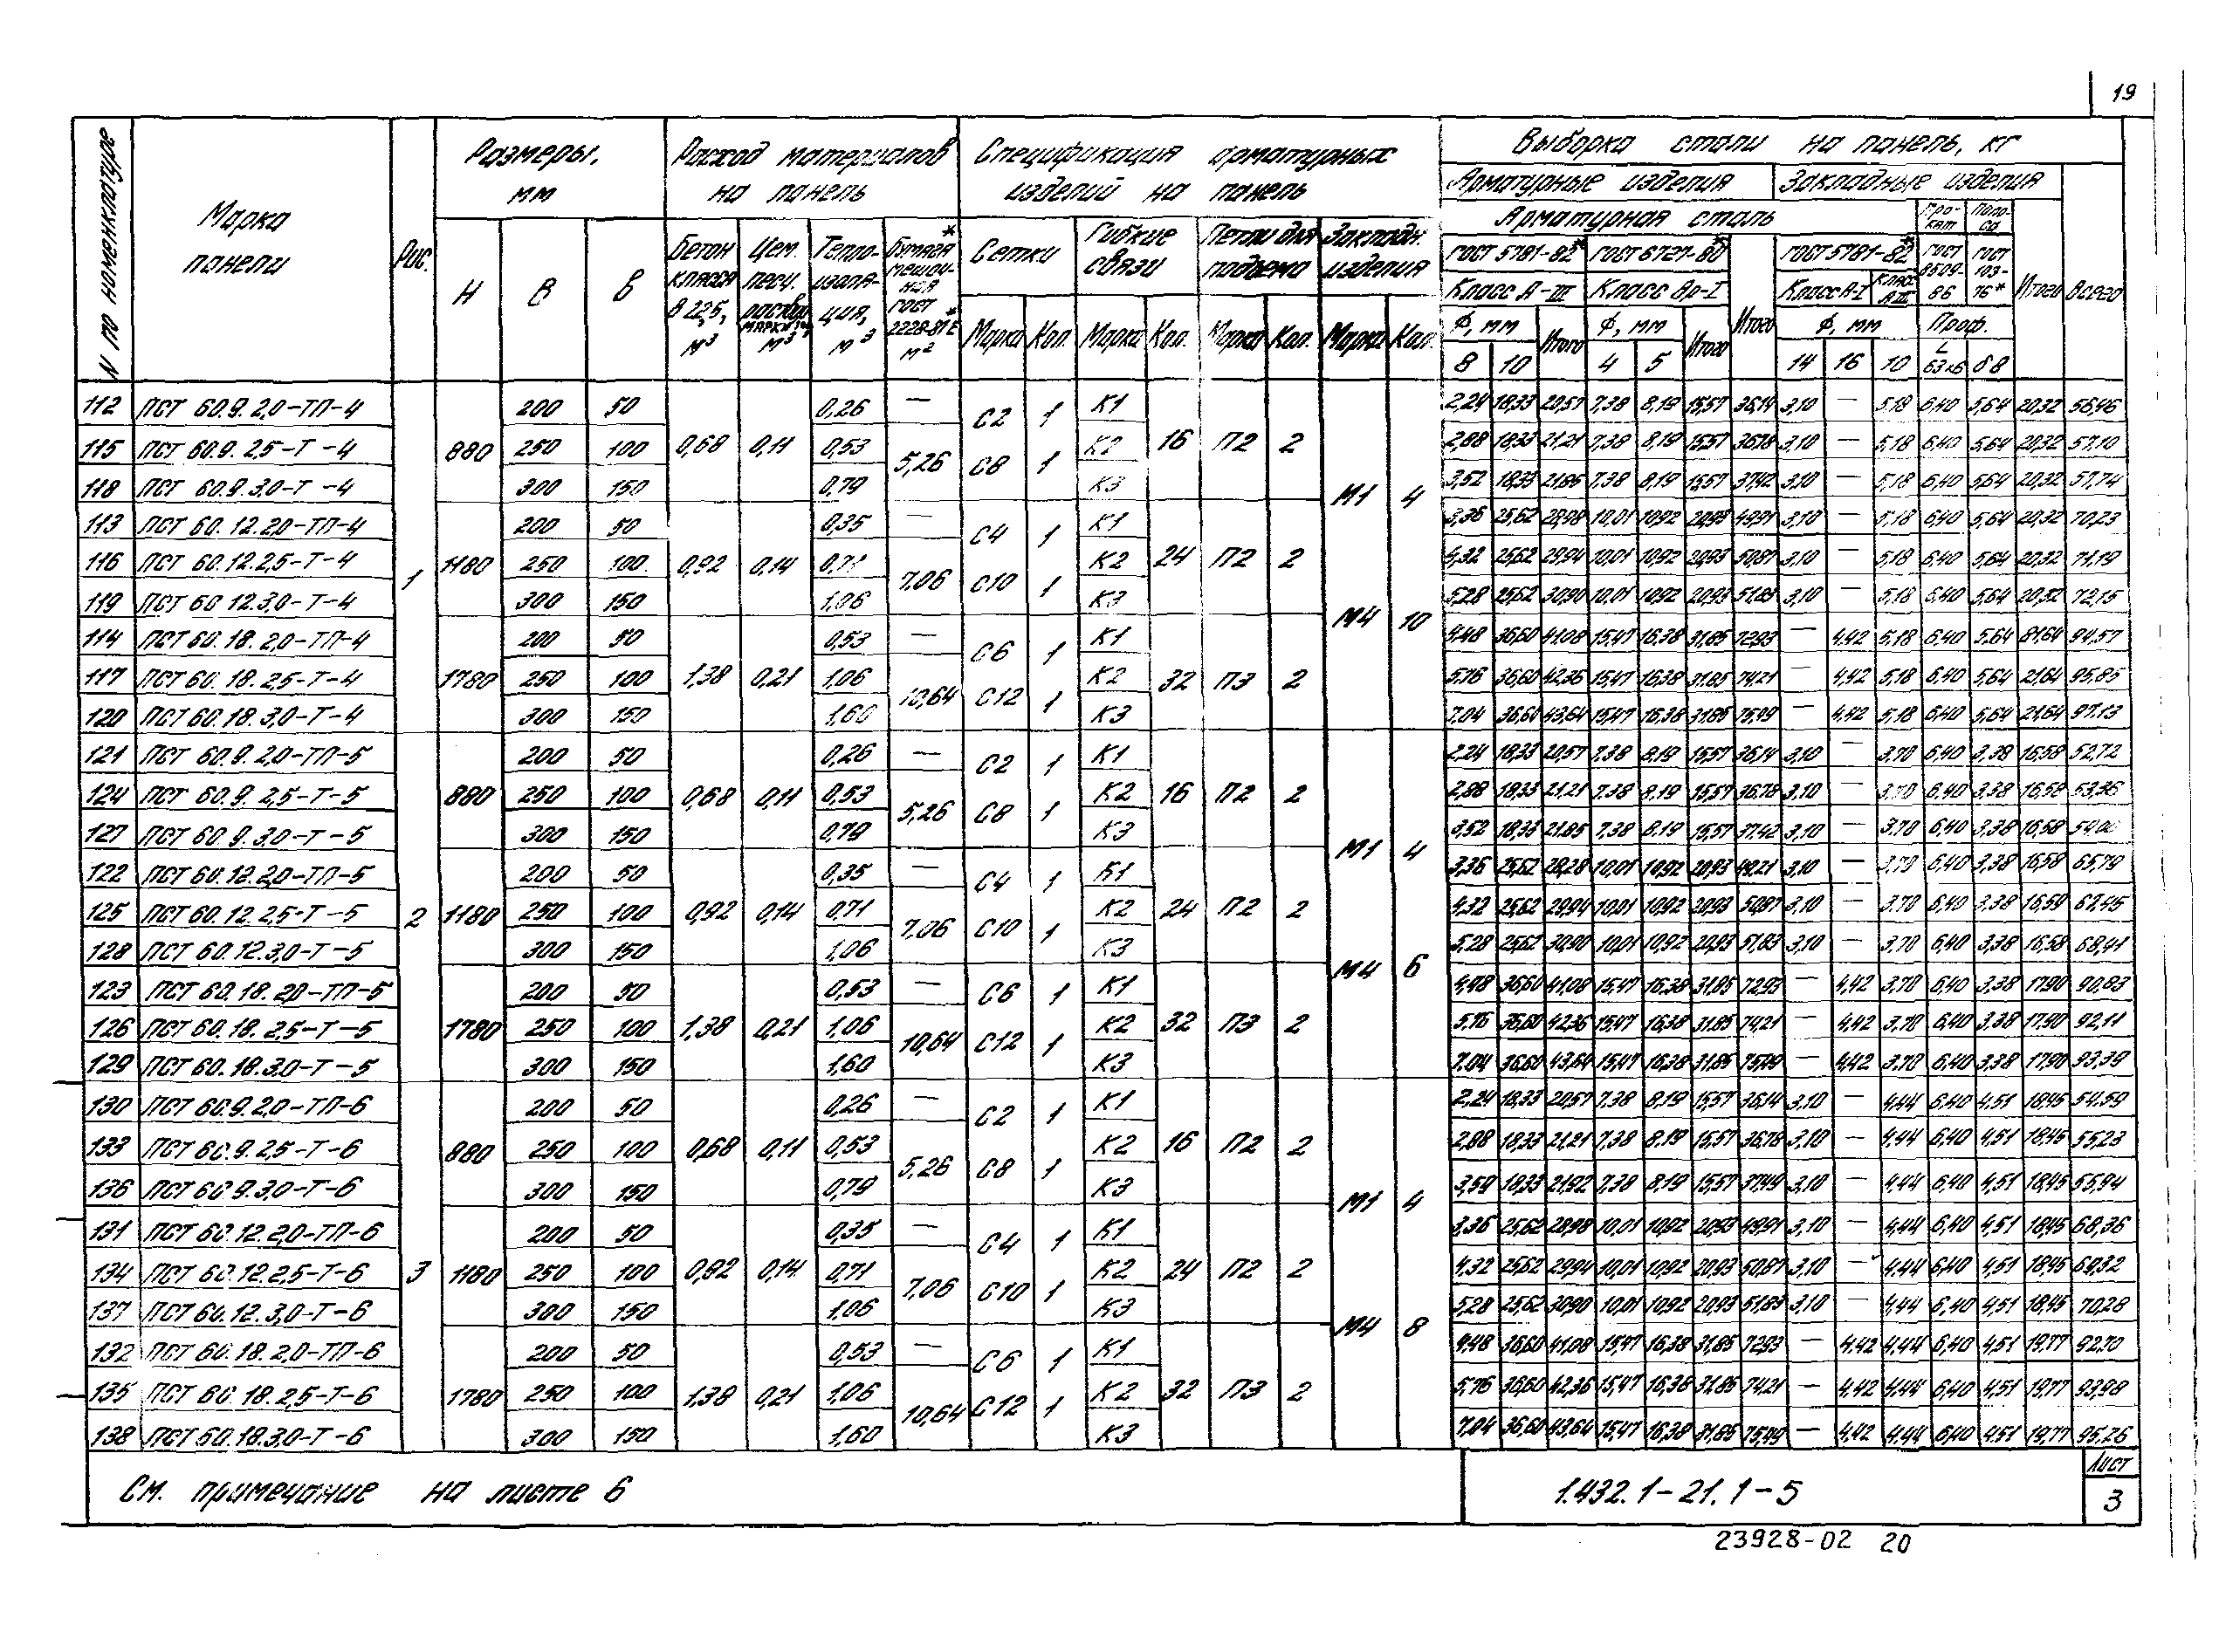 19
N по номенклатуре
Марка панели
Рис.
Размеры, мм
H
B
в
Расход материалов на панель
Бетон класса В 22,5, м³
Цем. песч. раствор марки м³
Теплоизоляция, м³
Бумага* мешочная ГОСТ 2228-81Е* м²
Спецификация арматурных изделий на панель
Сетки
Гибкие связи
Петли для подъема
Закладн. изделия
Марка Кол. Марка Кол. Марка Кол. Марка Кол.
Выборка стали на панель, кг
Арматурные изделия
Закладные изделия
Арматурная сталь
Прокат
Полоса
ГОСТ 5781-82* ГОСТ 6727-80* ГОСТ 5781-82* ГОСТ 8509-86 ГОСТ 103-76*
Класс А-III Класс Вр-I Класс А-I Класс А-III
Итого Итого Всего
Ф, мм Итого Ф, мм Итого Ф, мм Проф.
8 10 4 5 14 16 10 L 63×6 δ8
112 ПСТ 60.9.2,0-ТП-4 200 50 0,26 — С2 1 К1 2,24 18,33 20,57 7,38 8,19 15,57 36,14 3,10 — 5,18 6,40 5,64 20,32 56,46
115 ПСТ 60.9.2,5-Т-4 880 250 100 0,68 0,11 0,53 5,26 С8 1 К2 16 П2 2 2,88 18,33 21,21 7,38 8,19 15,57 36,78 3,10 — 5,18 6,40 5,64 20,32 57,10
118 ПСТ 60.9.3,0-Т-4 300 150 0,79 К3 М1 4 3,52 18,33 21,85 7,38 8,19 15,57 37,42 3,10 — 5,18 6,40 5,64 20,32 57,74
113 ПСТ 60.12.2,0-ТП-4 200 50 0,35 — С4 1 К1 3,36 25,62 28,98 10,01 10,92 20,93 49,91 3,10 — 5,18 6,40 5,64 20,32 70,23
116 ПСТ 60.12.2,5-Т-4 1 1180 250 100 0,92 0,14 0,71 7,06 С10 1 К2 24 П2 2 4,32 25,62 29,94 10,01 10,92 20,93 50,87 3,10 — 5,18 6,40 5,64 20,32 71,19
119 ПСТ 60.12.3,0-Т-4 300 150 1,06 К3 М4 10 5,28 25,62 30,90 10,01 10,92 20,93 51,83 3,10 — 5,18 6,40 5,64 20,32 72,15
114 ПСТ 60.18.2,0-ТП-4 200 50 0,53 — С6 1 К1 4,48 36,60 41,08 15,47 16,38 31,85 72,93 — 4,42 5,18 6,40 5,64 21,64 94,57
117 ПСТ 60.18.2,5-Т-4 1780 250 100 1,38 0,21 1,06 10,64 С12 1 К2 32 П3 2 5,76 36,60 42,36 15,47 16,38 31,85 74,21 — 4,42 5,18 6,40 5,64 21,64 95,85
120 ПСТ 60.18.3,0-Т-4 300 150 1,60 К3 7,04 36,60 43,64 15,47 16,38 31,85 75,49 — 4,42 5,18 6,40 5,64 21,64 97,13
121 ПСТ 60.9.2,0-ТП-5 200 50 0,26 — С2 1 К1 2,24 18,33 20,57 7,38 8,19 15,57 36,14 3,10 — 3,70 6,40 3,38 16,58 52,72
124 ПСТ 60.9.2,5-Т-5 880 250 100 0,68 0,11 0,53 5,26 С8 1 К2 16 П2 2 2,88 18,33 21,21 7,38 8,19 15,57 36,78 3,10 — 3,70 6,40 3,38 16,58 53,36
127 ПСТ 60.9.3,0-Т-5 300 150 0,79 К3 М1 4 3,52 18,33 21,85 7,38 8,19 15,57 37,42 3,10 — 3,70 6,40 3,38 16,58 54,00
122 ПСТ 60.12.2,0-ТП-5 200 50 0,35 — С4 1 К1 3,36 25,62 28,28 10,01 10,92 20,93 49,21 3,10 — 3,70 6,40 3,38 16,58 65,79
125 ПСТ 60.12.2,5-Т-5 2 1180 250 100 0,92 0,14 0,71 7,06 С10 1 К2 24 П2 2 4,32 25,62 29,94 10,01 10,92 20,93 50,87 3,10 — 3,70 6,40 3,38 16,58 67,45
128 ПСТ 60.12.3,0-Т-5 300 150 1,06 К3 М4 6 5,28 25,62 30,90 10,01 10,92 20,93 51,83 3,10 — 3,70 6,40 3,38 16,58 68,41
123 ПСТ 60.18.2,0-ТП-5 200 50 0,53 — С6 1 К1 4,48 36,60 41,08 15,47 16,38 31,85 72,93 — 4,42 3,70 6,40 3,38 17,90 90,83
126 ПСТ 60.18.2,5-Т-5 1780 250 100 1,38 0,21 1,06 10,64 С12 1 К2 32 П3 2 5,76 36,60 42,36 15,47 16,38 31,85 74,21 — 4,42 3,70 6,40 3,38 17,90 92,11
129 ПСТ 60.18.3,0-Т-5 300 150 1,60 К3 7,04 36,60 43,64 15,47 16,38 31,85 75,49 — 4,42 3,70 6,40 3,38 17,90 93,39
130 ПСТ 60.9.2,0-ТП-6 200 50 0,26 — С2 1 К1 2,24 18,33 20,57 7,38 8,19 15,57 36,14 3,10 — 4,44 6,40 4,51 18,45 54,59
133 ПСТ 60.9.2,5-Т-6 880 250 100 0,68 0,11 0,53 5,26 С8 1 К2 16 П2 2 2,88 18,33 21,21 7,38 8,19 15,57 36,78 3,10 — 4,44 6,40 4,51 18,45 55,23
136 ПСТ 60.9.3,0-Т-6 300 150 0,79 К3 М1 4 3,59 18,33 21,92 7,38 8,19 15,57 37,49 3,10 — 4,44 6,40 4,51 18,45 55,94
131 ПСТ 60.12.2,0-ТП-6 200 50 0,35 — С4 1 К1 3,36 25,62 28,98 10,01 10,92 20,93 49,91 3,10 — 4,44 6,40 4,51 18,45 68,36
134 ПСТ 60.12.2,5-Т-6 3 1180 250 100 0,92 0,14 0,71 7,06 С10 1 К2 24 П2 2 4,32 25,62 29,94 10,01 10,92 20,93 50,87 3,10 — 4,44 6,40 4,51 18,45 69,32
137 ПСТ 60.12.3,0-Т-6 300 150 1,06 К3 М4 8 5,28 25,62 30,90 10,01 10,92 20,93 51,83 3,10 — 4,44 6,40 4,51 18,45 70,28
132 ПСТ 60.18.2,0-ТП-6 200 50 0,53 — С6 1 К1 4,48 36,60 41,08 15,47 16,38 31,85 72,93 — 4,42 4,44 6,40 4,51 19,77 92,70
135 ПСТ 60.18.2,5-Т-6 1780 250 100 1,38 0,21 1,06 10,64 С12 1 К2 32 П3 2 5,76 36,60 42,36 15,47 16,38 31,85 74,21 — 4,42 4,44 6,40 4,51 19,77 93,98
138 ПСТ 60.18.3,0-Т-6 300 150 1,60 К3 7,04 36,60 43,64 15,47 16,38 31,85 75,49 — 4,42 4,44 6,40 4,51 19,77 95,26
См. примечание на листе 6
1.432.1-21.1-5
Лист
3
23928-02 20